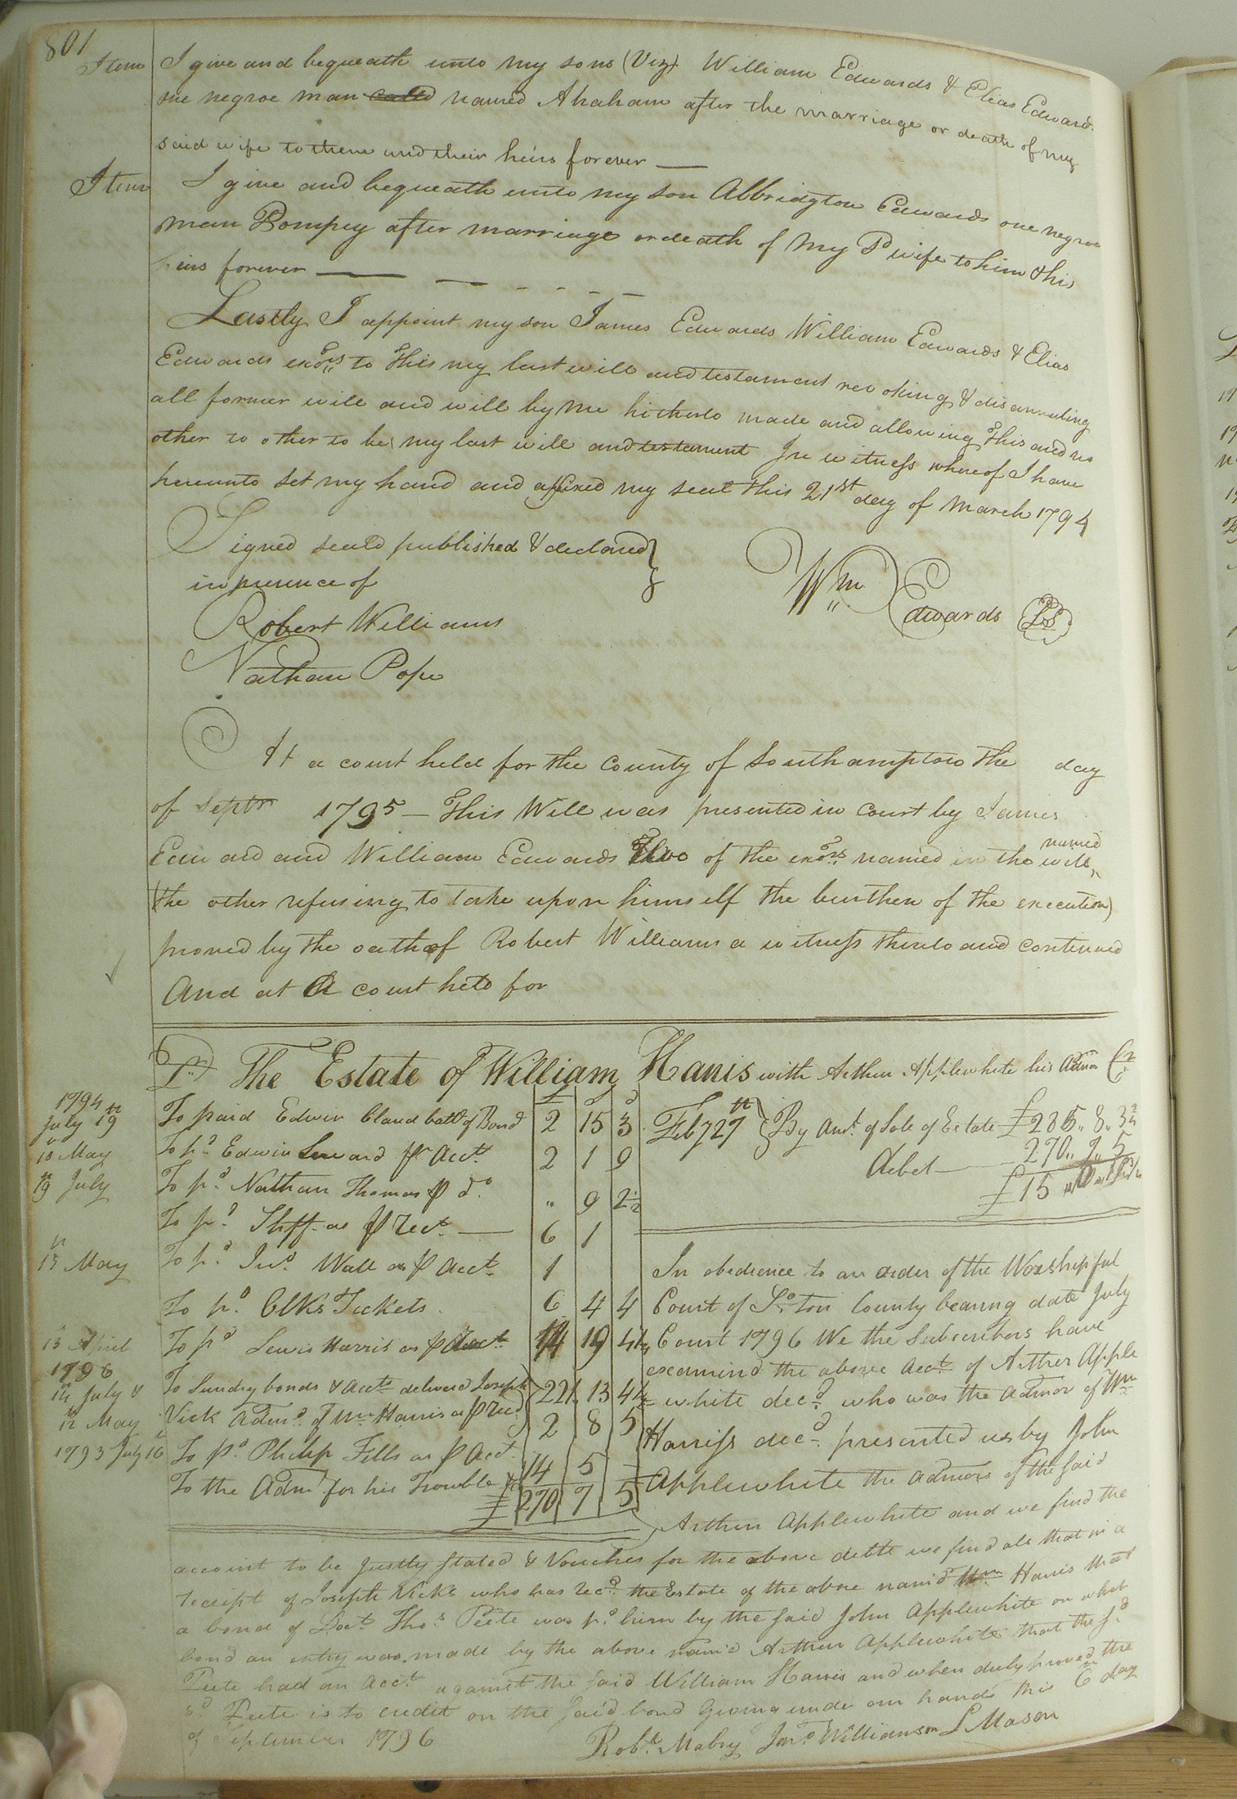 801
Item I give and bequeath unto my sons (Viz) William Edwards & Elias Edwards
one negroe man called named Abraham after the marriage or death of my
said wife to them and their heirs forever —
Item I give and bequeath unto my son Albridgton Edwards one negroe
man Pompey after marriage or death of my Sd wife to him & his
heirs forever —
Lastly I appoint my son James Edwards William Edwards & Elias
Edwards exors to this my last will and testament revoking & disannuling
all former will and will by me hitherto made and allowing this and no
other to other to be my last will and testament In witness whereof I have
hereunto set my hand and affixed my seal this 21st day of March 1794
Signed seald published & declared
in presence of
Wm Edwards LS
Robert Williams
Nathan Pope
At a court held for the County of Southampton the day
of Septr 1795 — This Will was presented in court by James
Edward and William Edwards Two of the exors named in the will,
named
(the other refusing to take upon himself the burthen of the execution)
proved by the oath of Robert Williams a witness thereto and continued
And at a court held for
Dr The Estate of William Harris with Arthur Applewhite his Admor Cr
£ s d
1794
July 19th To paid Edwin Claud ballc of Bond 2 15 3
10 May To pd Edwin pr Acct. 2 1 9
19th July To pd Nathan Thomas p do. " 9 2½
To pd Shff as p rect — 6 1
15th May To pd Jno Wall as p acct. 1
To pd ClKs Tickets 6 4 4
13 April To pd Lewis Harris as p acct 14 19 4½
1796
14th July & To Sundry bonds & accts. deliverd Joseph
12th May Vick Admr. of Wm Harris as p recd 221 13 4½
1793 July 16 To pd Philip Fills as p acct 2 8 5
To the Admr for his Trouble 14 5
£ 270 7 5
Feby 27th By amt. of Sale of Estate £285. 8. 3½
270 " 7 " 5
debet — £15
In obedience to an order of the Worshipful
Court of So ton County bearing date July
Court 1796 We the Subscribers have
examined the above acct. of Arther Apple
white decd. who was the admor of Wm
Harriss decd. presented us by John
Applewhite the admors of the said
Arthur Applewhite and we find the
account to be justly stated & Vouches for the above debts we find all that in a
receipt of Joseph Vicks who has recd the Estate of the above named Wm Harris that
a bond of Doct. Thos Peete was pd him by the said John Applewhite on which
bond an entry was made by the above named Arthur Applewhite that the sd
Peete had an acct. against the said William Harris and when duely proved the
sd Peete is to credit on the said bond Giving under our hands this 6th day
of September 1796
Robt. Mabry Jno Williamson L Mason